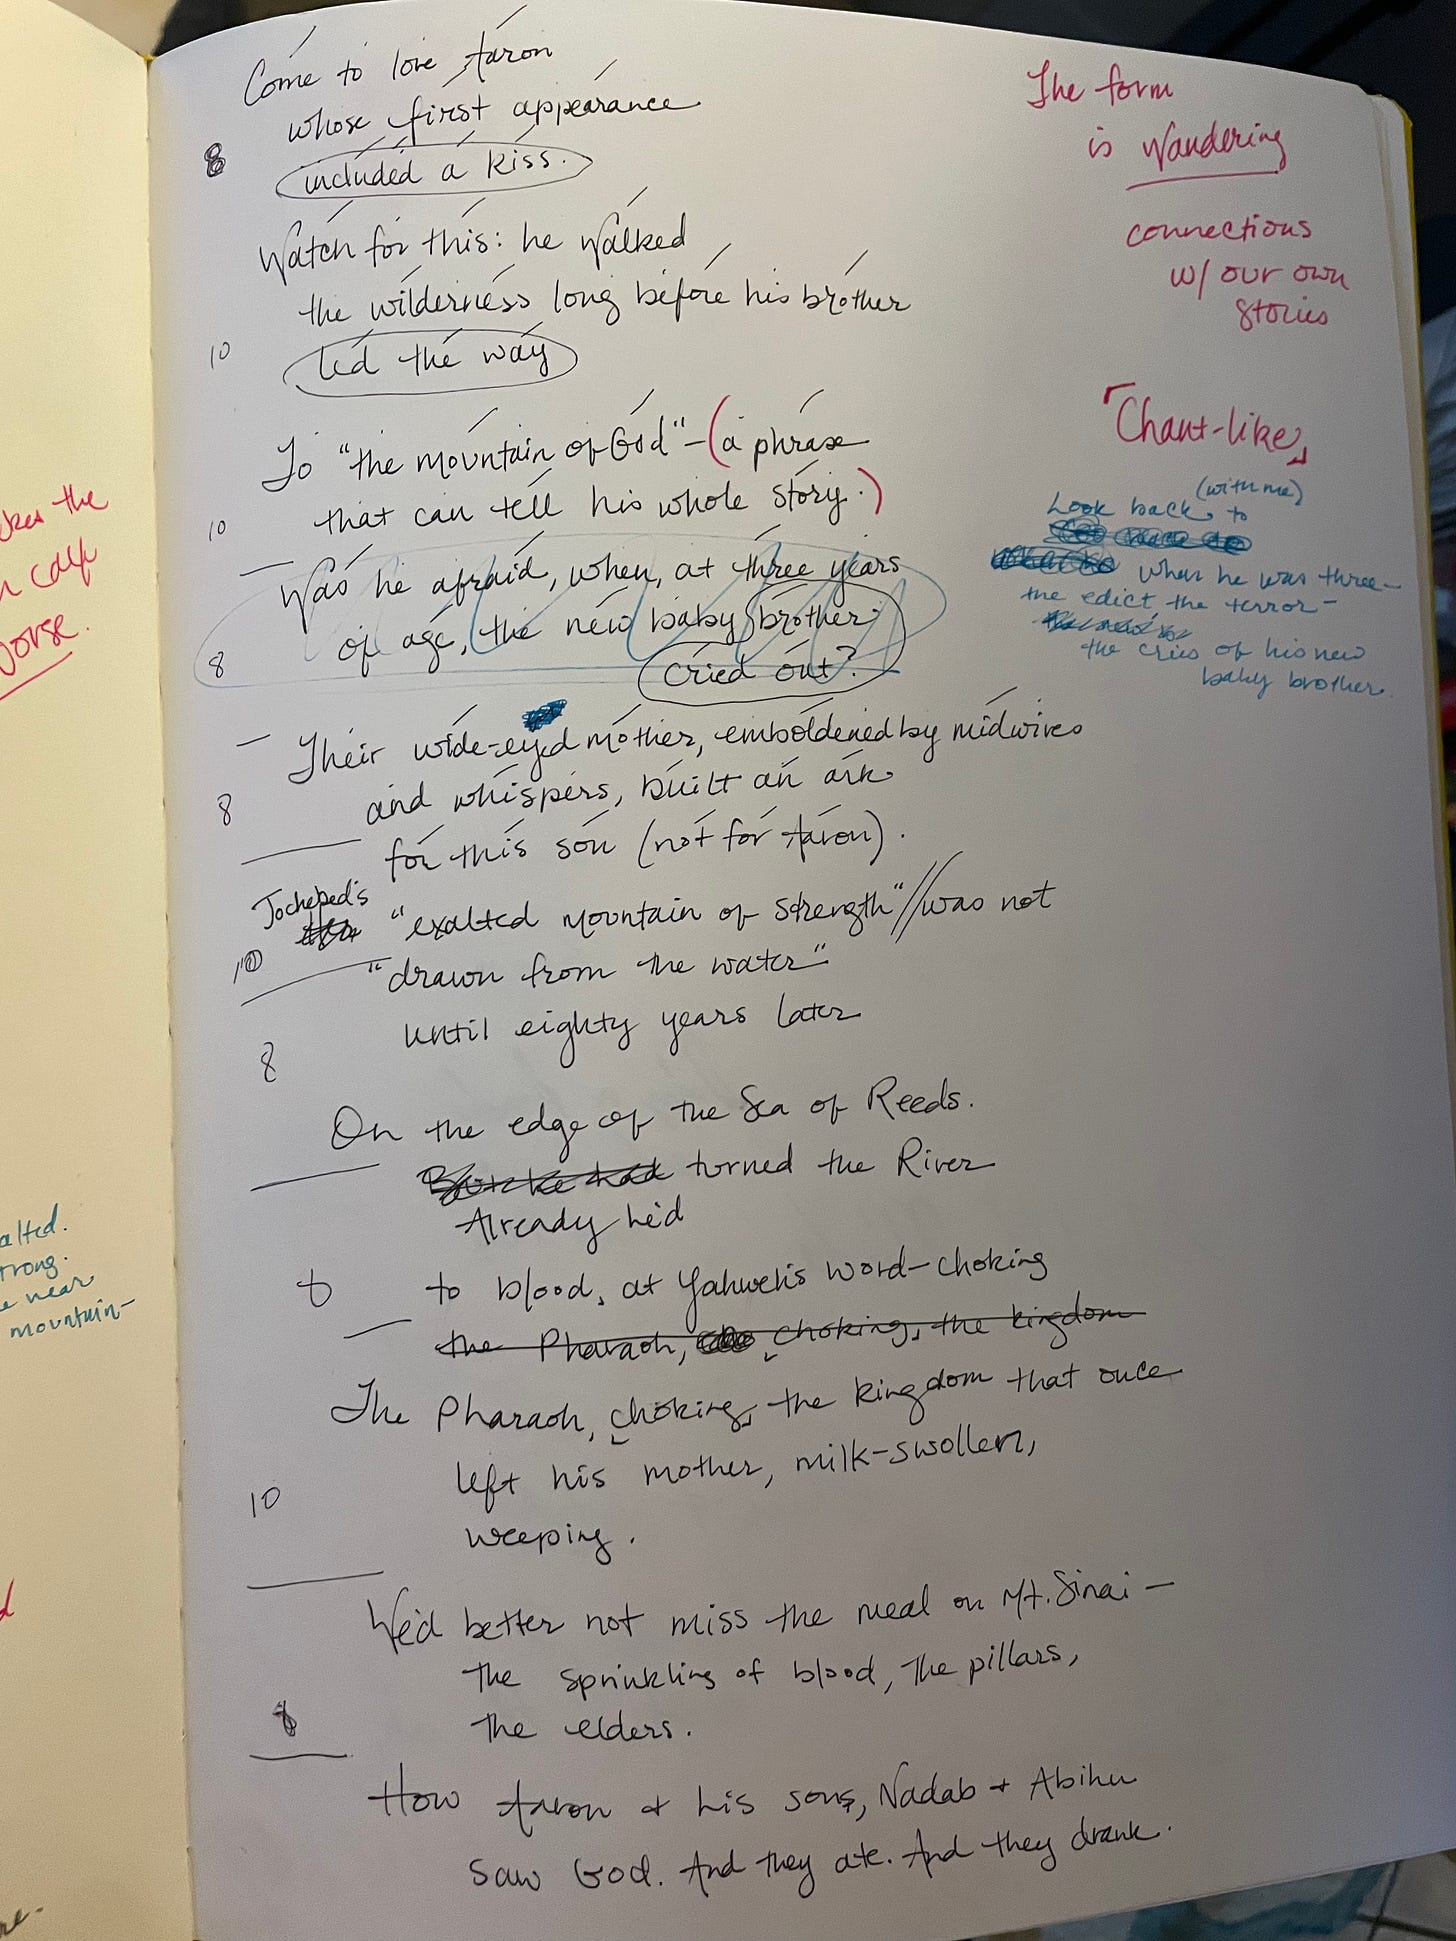 Come to love Aaron
whose first appearance
8
included a kiss.
Watch for this: he walked
the wilderness long before his brother
10
led the way
To "the mountain of God"–(a phrase
10
that can tell his whole story.)
Was he afraid, when, at three years
of age, the new baby brother
8
cried out?
Their wide-eyed mother, emboldened by midwives
8
and whispers, built an ark
for this son (not for Aaron).
Jochebed's
"exalted mountain of strength"//was not
10
"drawn from the water"
until eighty years later
8
On the edge of the Sea of Reeds.
But he had turned the River
Already he'd
8
to blood, at Yahweh's word–choking
the Pharaoh, choking, the kingdom
The Pharaoh, choking, the kingdom that once
left his mother, milk-swollen,
10
weeping.
We'd better not miss the meal on Mt. Sinai –
the sprinkling of blood, the pillars,
8
the elders.
How Aaron & his sons, Nadab & Abihu
saw God. And they ate. And they drank.
The form
is Wandering
connections
w/ our own
stories
"Chant-like"
(with me)
Look back to
when he was three–
the edict the terror–
the cries of his new
baby brother.
the
calf
worse.
alted.
trong.
e near
mountain–
re.